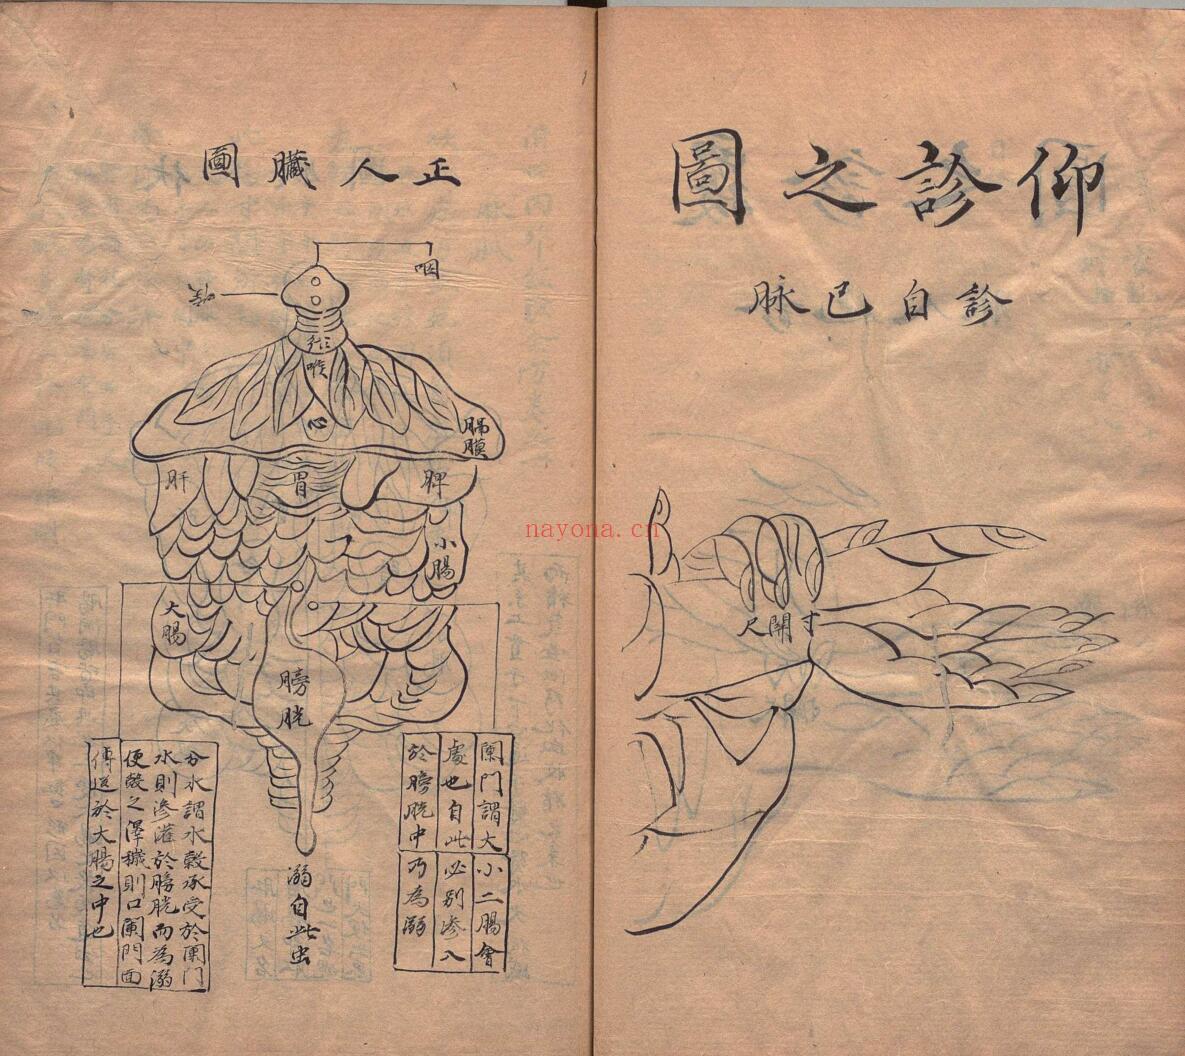 仰診之圖
診自己脉
寸
関
尺
正人臟圖
咽
喉
喉
心
膈膜
肝
胃
脾
小腸
大腸
膀胱
闌門謂大小二腸會
處也自此必別滲入
於膀胱中乃為溺
溺自此出
分水謂水穀承受於闌門
水則滲灌於膀胱而為溺
便穀之滓穢則口闌門面
傳送於大腸之中也
nayona.cn